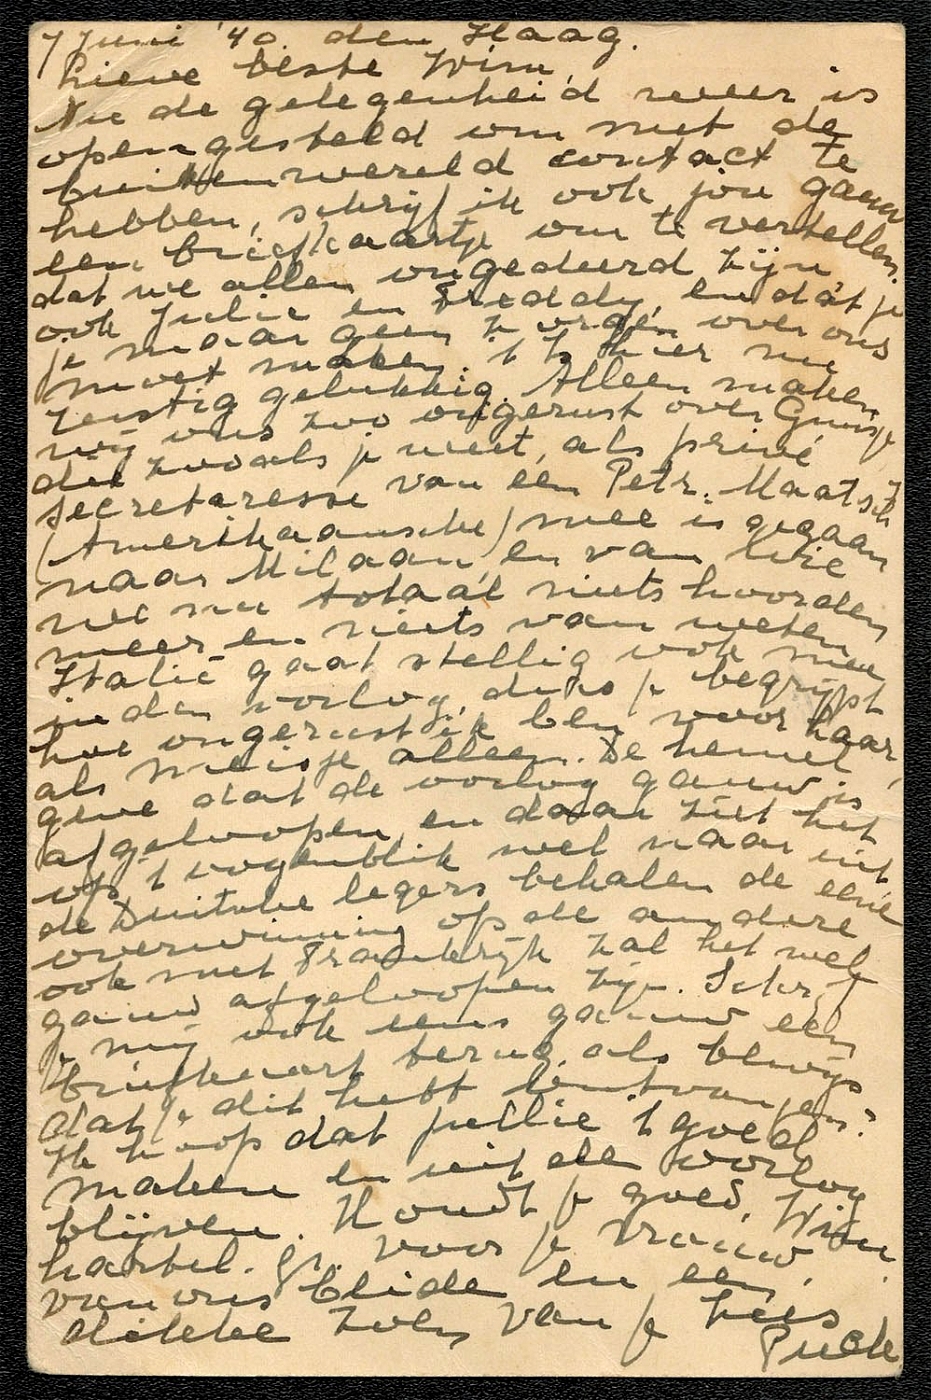 7 Juni '40. den Haag.
Lieve beste Wim,
Nu de gelegenheid weer is
opengesteld om met de
buitenwereld contact te
hebben, schrijf ik ook jou gauw
een briefkaartje om te vertellen,
dat we allen ongedeerd zijn
ook Julie en Freddy, en dat je
je maar geen zorgen over ons
moet maken. 't Is hier nu
rustig gelukkig. Alleen maken
wij ons zoo ongerust over Gusje
die zooals je weet, als privé
secretaresse van een Petr. Maatsch
(Amerikaansche) mee is gegaan
naar Milaan, en van wie
we nu totaal niets hoorden
meer en niets van weten
Italië gaat stellig ook mee
in den oorlog, dus je begrijpt
hoe ongerust ik ben voor haar,
als meisje alleen. De hemel
geve dat de oorlog gauw is
afgeloopen en daar ziet het
op 't oogenblik wel naar uit
de Duitsche legers behalen de eene
overwinning op de andere
ook met Frankrijk zal het wel
gauw afgeloopen zijn. Schrijf
je mij ook eens gauw een
briefkaart terug, als bewijs
dat je dit hebt ontvangen?
Ik hoop dat jullie 't goed
maken en uit den oorlog
blijven. Houdt je goed, Wim
hartel. gr. voor je vrouw.
van ons beide en een
dikke zoen van je
Puck